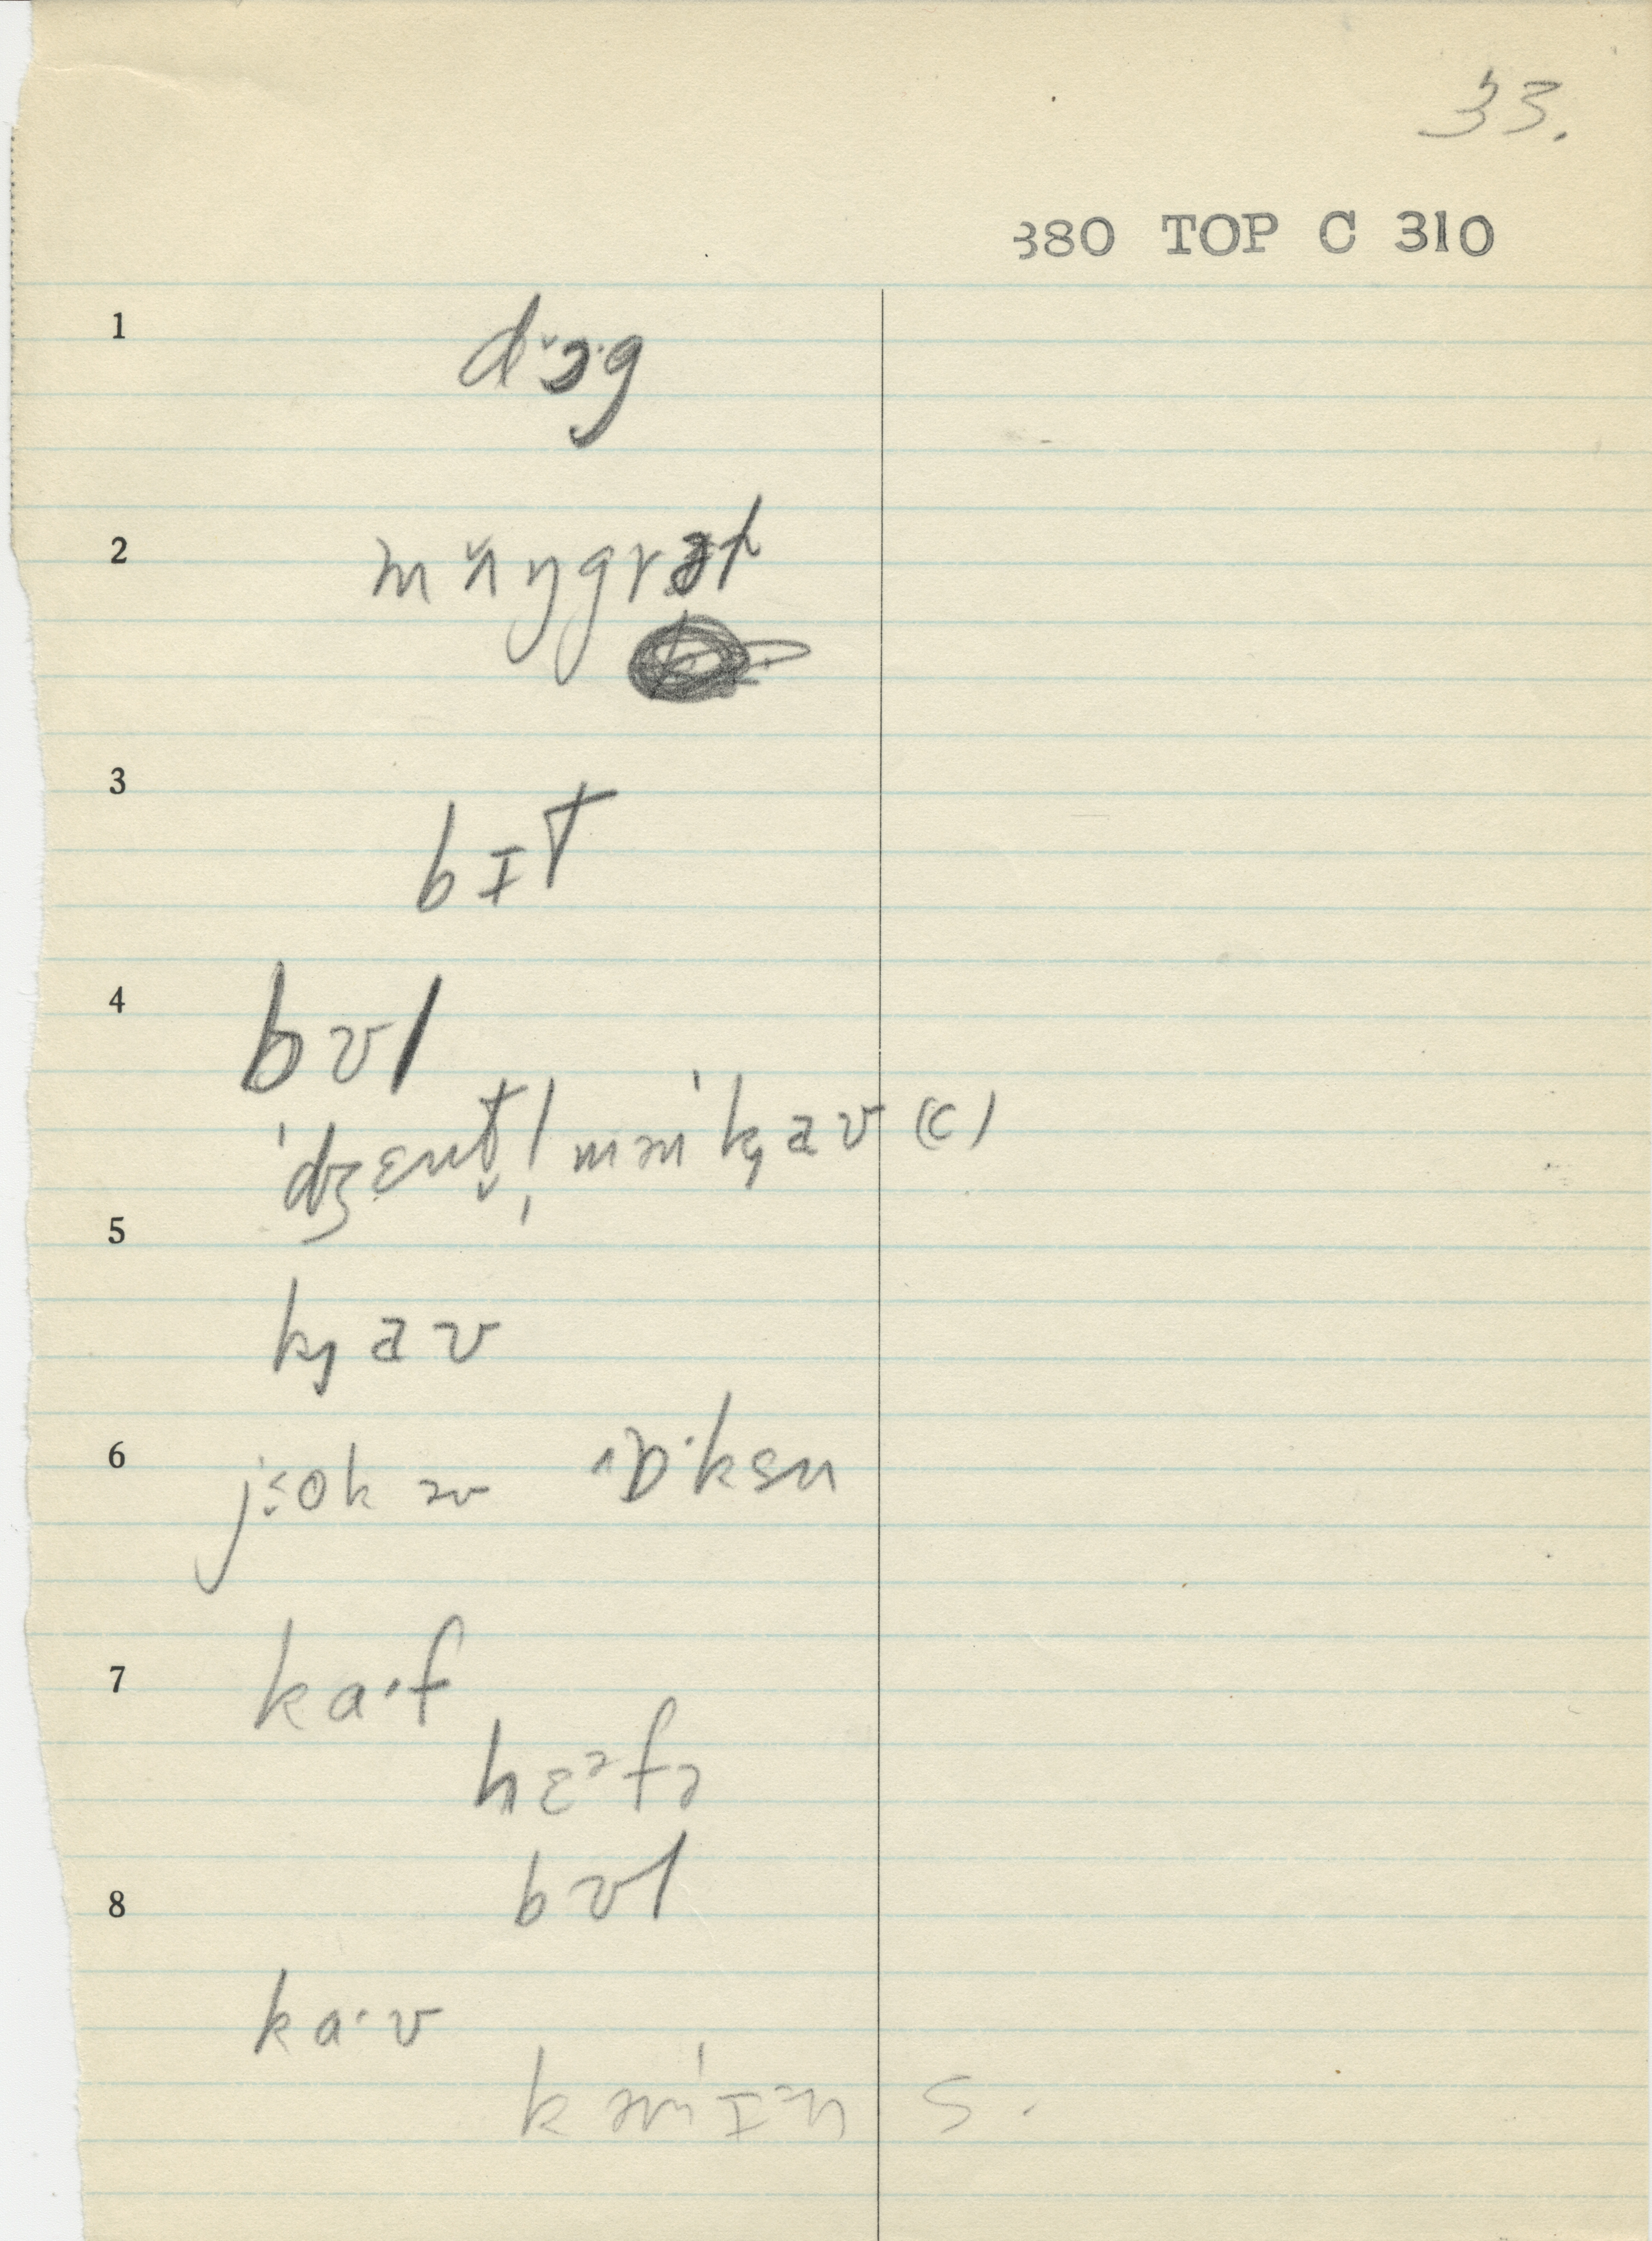 33.
380 TOP C 310
1 dɔ·g
2 mʌŋgrəl
3 bɪT
4 bʊl
ˈdʒɛnt̬l̩ mənˈkɟaʊ (c)
5 kɟaʊ
6 jɔok əv ˈɒ·ksn
7 ka·f
hɛᵊfə
bʊl
8 ka·ʊ
k əmˈɪən s.